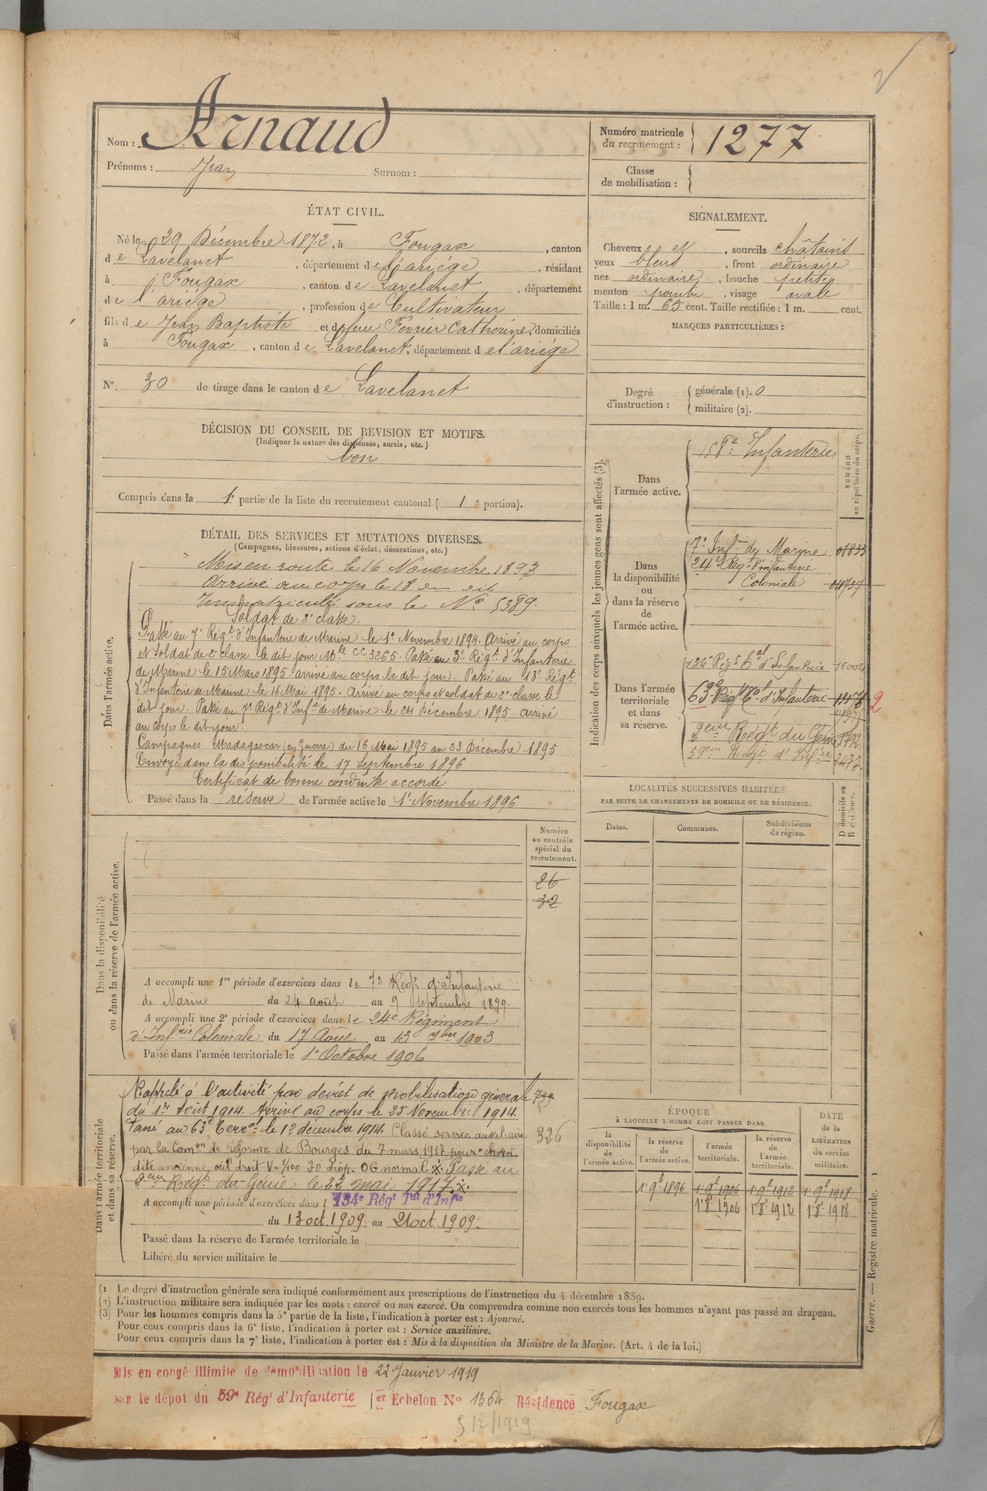 Nom : Arnaud
Prénoms : Jean Surnom :
Numéro matricule du recrutement : 1277
Classe de mobilisation :
ÉTAT CIVIL.
Né le 29 Décembre 1872, à Fougax, canton
de Lavelanet, département de l'ariège, résidant
à Fougax, canton de Lavelanet, département
de l'ariège, profession de Cultivateur
fils de Jean Baptiste et de feue Février Catherine, domiciliés
à Fougax, canton de Lavelanet, département de l'ariège
N° 30 de tirage dans le canton de Lavelanet
SIGNALEMENT.
Cheveux et, sourcils châtains
yeux bleus, front ordinaire
nez ordinaire, bouche petite
menton pointu, visage ovale
Taille : 1 m. 65 cent. Taille rectifiée : 1 m. cent.
MARQUES PARTICULIÈRES :
Degré d'instruction : générale (1). 0
militaire (2).
DÉCISION DU CONSEIL DE REVISION ET MOTIFS.
(Indiquer la nature des dispenses, sursis, etc.)
bon
Compris dans la 1e partie de la liste du recrutement cantonal ( 1e portion).
DÉTAIL DES SERVICES ET MUTATIONS DIVERSES.
(Campagnes, blessures, actions d'éclat, décorations, etc.)
Dans l'armée active.
Mis en route le 16 Novembre 1893
Arrivé au corps le 18 dit
Immatriculé sous le N° 5389.
Soldat de 2e classe.
Passé au 7e Régt d'Infanterie de Marine le 1er Novembre 1894. Arrivé au corps
et Soldat de 2e classe le dit jour Mle CC3365. Passé au 3e Régt d'Infanterie
de Marine le 15 Mars 1895 arrivé au corps le dit jour. Passé au 13e Régt
d'Infanterie de Marine le 16 Mai 1895. Arrivé au corps et soldat de 2e classe le
dit jour. Passé au 7e Régt d'Infie de Marine le 24 Décembre 1895 arrivé
au corps le dit jour
Campagnes Madagascar (en Guerre) du 16 Mai 1895 au 23 Décembre 1895
Envoyé dans la disponibilité le 17 Septembre 1896
Certificat de bonne conduite accordé
Passé dans la réserve de l'armée active le 1er Novembre 1896
Indication des corps auxquels les jeunes gens sont affectés (3).
NUMÉRO au répertoire du corps.
Dans l'armée active.
158e Infanterie
Dans la disponibilité ou dans la réserve de l'armée active.
7e Infie de Marine 01833
24e Régt d'infanterie
Coloniale 04737
Dans l'armée territoriale et dans sa réserve.
126e Régt Tal d'Infanterie
63e Régt Tal d'Infanterie 2
2eme Régt du Génie
59eme Regt d'Infie
LOCALITÉS SUCCESSIVES HABITÉES
PAR SUITE DE CHANGEMENTS DE DOMICILE OU DE RÉSIDENCE.
Dates. Communes. Subdivisions de région. D domicile ou R résidence.
Dans la disponibilité ou dans la réserve de l'armée active.
Numéro au contrôle spécial du recrutement.
26
32
A accompli une 1re période d'exercices dans le 7e Régt d'Infanterie
de Marine du 24 août au 9 Septembre 1899.
A accompli une 2e période d'exercices dans le 24e Régiment
d'Infrie Coloniale du 17 Août au 13 7bre 1903.
Passé dans l'armée territoriale le 1er Octobre 1906
Dans l'armée territoriale et dans sa réserve.
Rappelé à l'activité par décret de mobilisation générale
du 1er Août 1914. Arrivé au corps le 25 Novembre 1914.
Passé au 63e Terral le 12 décembre 1914. Classé service auxiliaire 326
par la Comon de réforme de Bourges du 7 mars 1917 pour choroï-
dite ancienne œil droit V = 1/100 30 diop. OG normal. Passé au
2eme Régt du Génie le 22 mai 1917.
A accompli une période d'exercices dans l 134e Régt Tal d'Infie
du 13 oct. 1909. au 21 oct. 1909.
Passé dans la réserve de l'armée territoriale le
Libéré du service militaire le
ÉPOQUE
À LAQUELLE L'HOMME DOIT PASSER DANS
la disponibilité de l'armée active. la réserve de l'armée active. l'armée territoriale. la réserve de l'armée territoriale. DATE de la LIBÉRATION du service militaire.
1er 9bre 1896 1er 9bre 1906 1er 9bre 1912 1er 9bre 1918
1er 8bre 1906 1er 8bre 1912 1er 8bre 1918
(1) Le degré d'instruction générale sera indiqué conformément aux prescriptions de l'instruction du 4 décembre 1889.
(2) L'instruction militaire sera indiquée par les mots : exercé ou non exercé. On comprendra comme non exercés tous les hommes n'ayant pas passé au drapeau.
(3) Pour les hommes compris dans la 5e partie de la liste, l'indication à porter est : Ajourné.
Pour ceux compris dans la 6e liste, l'indication à porter est : Service auxiliaire.
Pour ceux compris dans la 7e liste, l'indication à porter est : Mis à la disposition du Ministre de la Marine. (Art. 4 de la loi.)
Guerre. — Registre matricule. 1
Mis en congé illimité de démobilisation le 22 Janvier 1919
sur le dépôt du 59e Régt d'Infanterie 1er Echelon N° 1364 Résidence Fougax